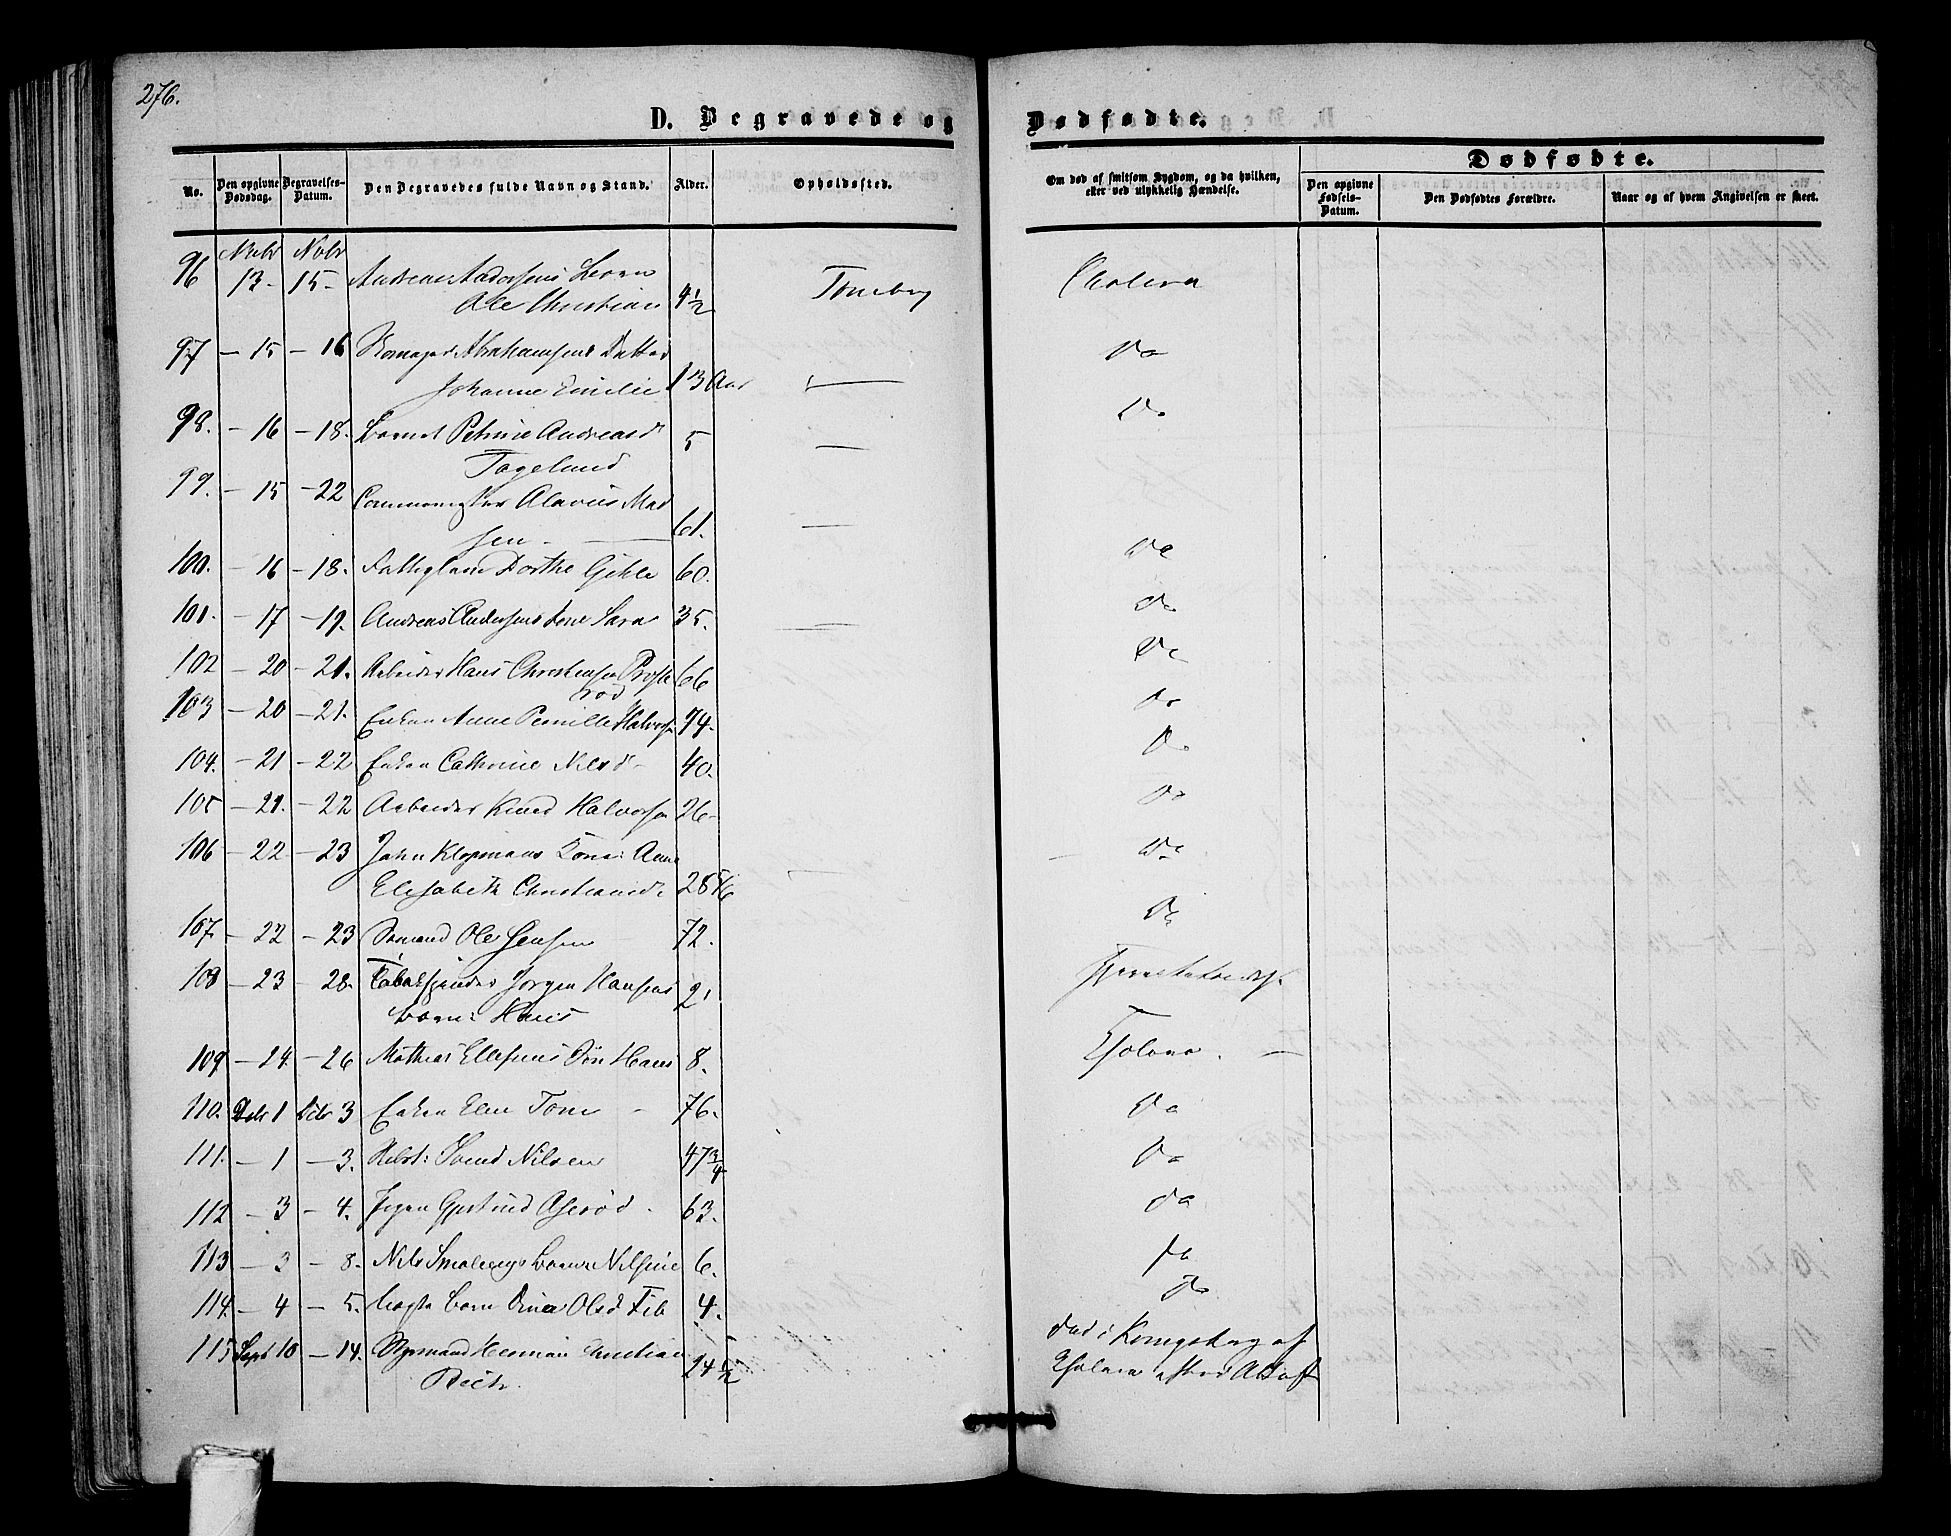 276.
D. Begravede og
Dødfødte.
No.
Den opgivne Dødsdag.
Begravelses-Datum.
Den Begravedes fulde Navn og Stand.
Alder.
Opholdssted.
Om død af smitsom Sygdom, og da hvilken, eller ved ulykkelig Hændelse.
Dødfødte.
Den opgivne Fødsels-Datum.
Den Dødfødtes Forældre.
Naar og af hvem Angivelsen er skeet.
Nvbr Nvbr
96 13- 15- Andreas Andersens Barn
Ole Christian 4 1/2 Tønsberg Cholera
97 - 15 - 16 Abrahamsens Datter Do
Johanne Emilie 13 Aar —
98. - 16 - 18. Barnet Petrine Andreasd 5 — Do
99. - 15 - 22 Alavius Mad
sen - 61. —
100. - 16 - 18. Dorthe 60. Do
101. - 17 - 19. Andreas Andersens Kone Sara 35. — Do
102 - 20 - 21. Arbeider Hans Christensen 66 Do
rød
103 - 20 - 21. Enken Anne Pernille Halvorsn 74. Do
104. - 21 - 22 Enken Cathrine Nilsd - 40. Do
105 - 21. - 22 Arbeider Knud Halvorsn 26- Do
106 - 22 - 23 John Klopmans Kone: Anne
Elisabeth Christiansd. 28 — Do
107. - 22 - 23 Sømand Ole Jensen 72. Do
108 - 23 - 28. Jørgen Hansens 2
Barn: Hans
109 - 24. - 26 Mathias Ellefsens Søn Hans 8. Cholera. —
110. Dcbr 1 Dcbr 3 Enken Elen Tom - 76. Do
111. - 1 - 3. Svend Nilsen 47 3/4 Do
112 - 3 - 4. Pigen Gjertrud Aserød. 63. Do
113 - 3 - 8. Nils Smebergs Barn Nilsine 6. Do
114. - 4 - 5. Barn Olsd 4. Do
115 Sept 10 - 14. Herman Christian 24 1/2 død i Kongsberg af
Cholera